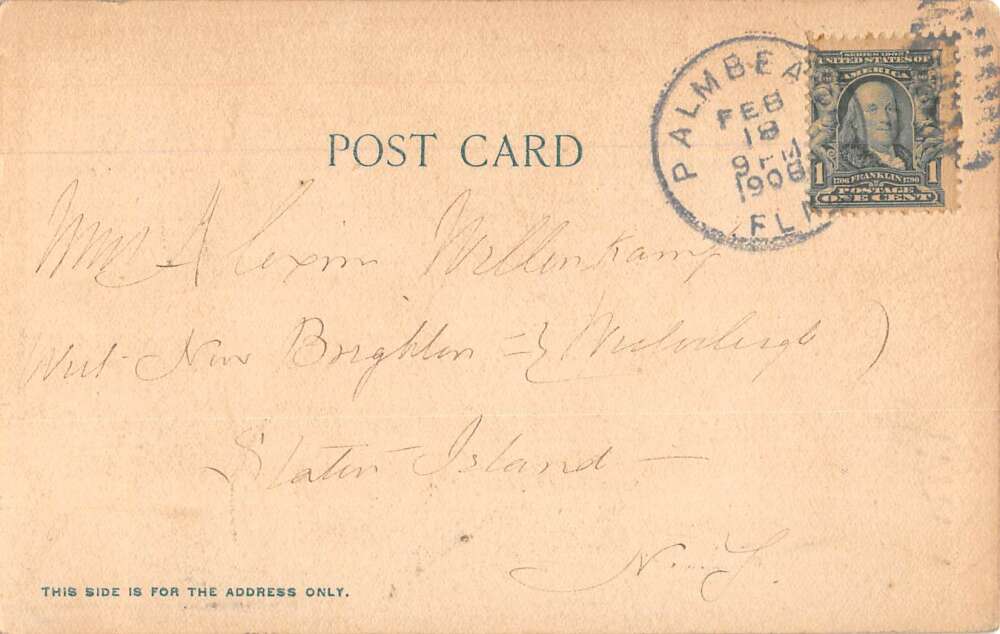 POST CARD
PALM BEA
FEB
18
9 PM
1908
FLA
SERIES 1902
UNITED STATES OF
AMERICA
1 1706 FRANKLIN 1790 1
POSTAGE
ONE CENT
Miss Alexim Mellenkamp
West New Brighton (Westerleigh)
Staten Island
N.Y.
THIS SIDE IS FOR THE ADDRESS ONLY.